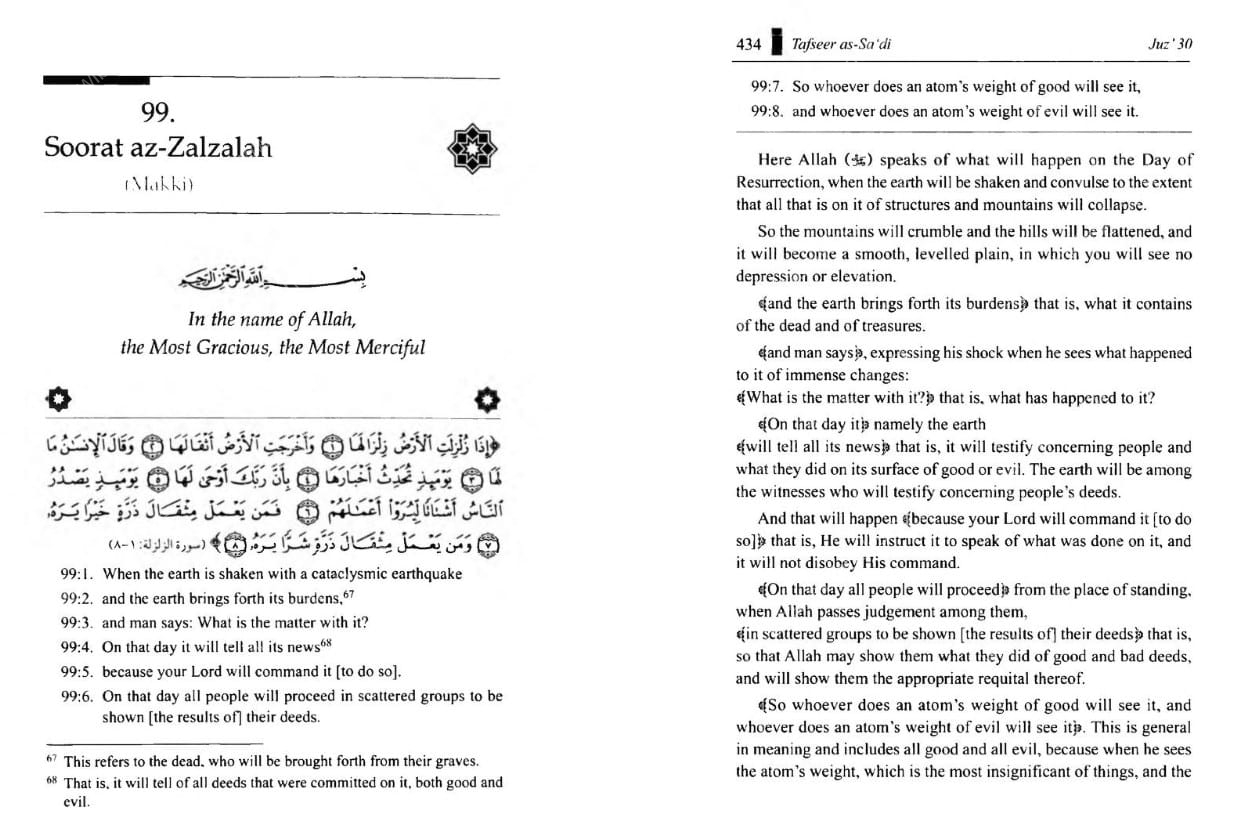 99.
Soorat az-Zalzalah
(Makki)
بِسْمِ ٱللَّهِ ٱلرَّحْمَٰنِ ٱلرَّحِيمِ
In the name of Allah,
the Most Gracious, the Most Merciful
﴿إِذَا زُلْزِلَتِ ٱلْأَرْضُ زِلْزَالَهَا ۝١ وَأَخْرَجَتِ ٱلْأَرْضُ أَثْقَالَهَا ۝٢ وَقَالَ ٱلْإِنسَٰنُ مَا
لَهَا ۝٣ يَوْمَئِذٍ تُحَدِّثُ أَخْبَارَهَا ۝٤ بِأَنَّ رَبَّكَ أَوْحَىٰ لَهَا ۝٥ يَوْمَئِذٍ يَصْدُرُ
ٱلنَّاسُ أَشْتَاتًا لِّيُرَوْا۟ أَعْمَٰلَهُمْ ۝٦ فَمَن يَعْمَلْ مِثْقَالَ ذَرَّةٍ خَيْرًا يَرَهُۥ
۝٧ وَمَن يَعْمَلْ مِثْقَالَ ذَرَّةٍ شَرًّا يَرَهُۥ ۝٨﴾ (سورة الزلزلة: ١-٨)
99:1. When the earth is shaken with a cataclysmic earthquake
99:2. and the earth brings forth its burdens,67
99:3. and man says: What is the matter with it?
99:4. On that day it will tell all its news68
99:5. because your Lord will command it [to do so].
99:6. On that day all people will proceed in scattered groups to be
shown [the results of] their deeds.
67 This refers to the dead, who will be brought forth from their graves.
68 That is, it will tell of all deeds that were committed on it, both good and
evil.
434 Tafseer as-Sa'di Juz' 30
99:7. So whoever does an atom's weight of good will see it,
99:8. and whoever does an atom's weight of evil will see it.
Here Allah (ﷻ) speaks of what will happen on the Day of
Resurrection, when the earth will be shaken and convulse to the extent
that all that is on it of structures and mountains will collapse.
So the mountains will crumble and the hills will be flattened, and
it will become a smooth, levelled plain, in which you will see no
depression or elevation.
﴾and the earth brings forth its burdens﴿ that is, what it contains
of the dead and of treasures.
﴾and man says﴿, expressing his shock when he sees what happened
to it of immense changes:
﴾What is the matter with it?﴿ that is, what has happened to it?
﴾On that day it﴿ namely the earth
﴾will tell all its news﴿ that is, it will testify concerning people and
what they did on its surface of good or evil. The earth will be among
the witnesses who will testify concerning people's deeds.
And that will happen ﴾because your Lord will command it [to do
so]﴿ that is, He will instruct it to speak of what was done on it, and
it will not disobey His command.
﴾On that day all people will proceed﴿ from the place of standing,
when Allah passes judgement among them,
﴾in scattered groups to be shown [the results of] their deeds﴿ that is,
so that Allah may show them what they did of good and bad deeds,
and will show them the appropriate requital thereof.
﴾So whoever does an atom's weight of good will see it, and
whoever does an atom's weight of evil will see it﴿. This is general
in meaning and includes all good and all evil, because when he sees
the atom's weight, which is the most insignificant of things, and the